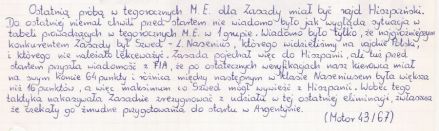 Ostatnią próbą w tegorocznych M.E. dla Zasady miał być rajd Hiszpański.
Do ostatniej niemal chwili przed startem nie wiadomo było jak wygląda sytuacja w
tabeli prowadzących w tegorocznych M.E. w 1 grupie. Wiadomo było tylko, że najgroźniejszym
konkurentem Zasady był Szwed - L. Nasenius, którego widzieliśmy na rajdzie Polski,
i którego nie należało lekceważyć. Zasada pojechał więc do Hiszpanii, ale tuż przed
startem przyszła wiadomość z FIA, że po ostatecznych weryfikacjach nasz kierowca miał
na swym koncie 64 punkty i różnica między następnym w klasie Naseniusem była większa
niż 16 punktów, a więc maksimum co Szwed mógł wywieźć z Hiszpanii. Wobec tego
taktyka nakazywała Zasadzie zrezygnować z udziału w tej ostatniej eliminacji, zwłaszcza
że czekały go żmudne przygotowania do startu w Argentynie.
(Motor 43/67)